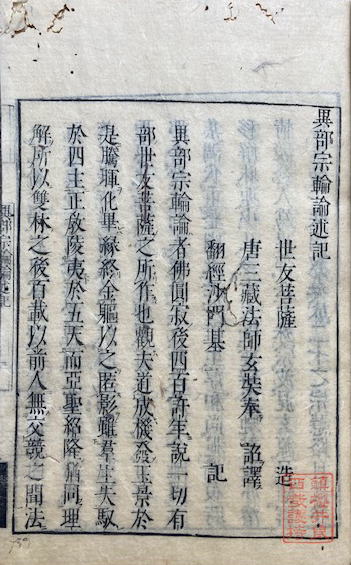 異部宗輪論述記
世友菩薩 造
唐三藏法師玄奘奉 詔譯
翻經沙門基 記
異部宗輪論者佛圓寂後四百許年說一切有
部世友菩薩之所作也觀夫道成機發玉景於
是騰暉化畢緣終金軀以之匿影雖羣生失馭
於四主正教陵夷於五天而亞聖紹隆痛同理
解所以雙林之後百載以前人無交競之聞法
異部宗輪論述記